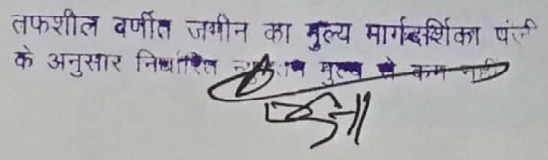 तफशील वर्णीत जमीन का मुल्य मार्गदर्शिका पंजी
के अनुसार निर्धारित न्युनतम मुल्य से कम नही